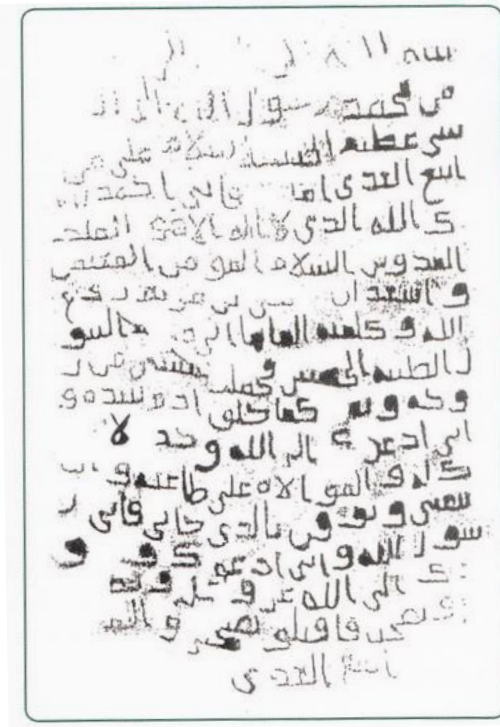 بسم ال
من محمد رسول الله الى ال
سى عظيم الحبشة سلام على من
اتبع الهدى اما فانى احمد ال
ك الله الذى لا اله الا هو الملك
القدوس السلام المومن المهيمن
و اشهد ان عيسى بن مريم روح
الله و كلمته القاها الى مريم البتو
ل الطيبة الحصينة فحملت بعيسى من ر
وحه و نفخه كما خلق ادم بيده و
انى ادعوك الى الله وحده لا
له و الموالاه على طاعته و ان
تتبعنى و توقن بالذى جانى فانى ر
سول الله و انى ادعوك و
ك الى الله عز و جل و قد
و نصحت فاقبلو نصيحتى و السلا
اتبع الهدى